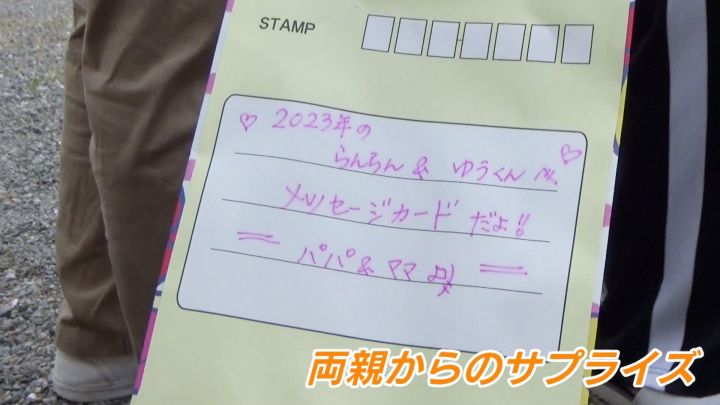 STAMP
♡ 2023年の
らんらん & ゆうくん へ ♡
メッセージカード だよ!!
パパ& ママ より
両親からのサプライズ